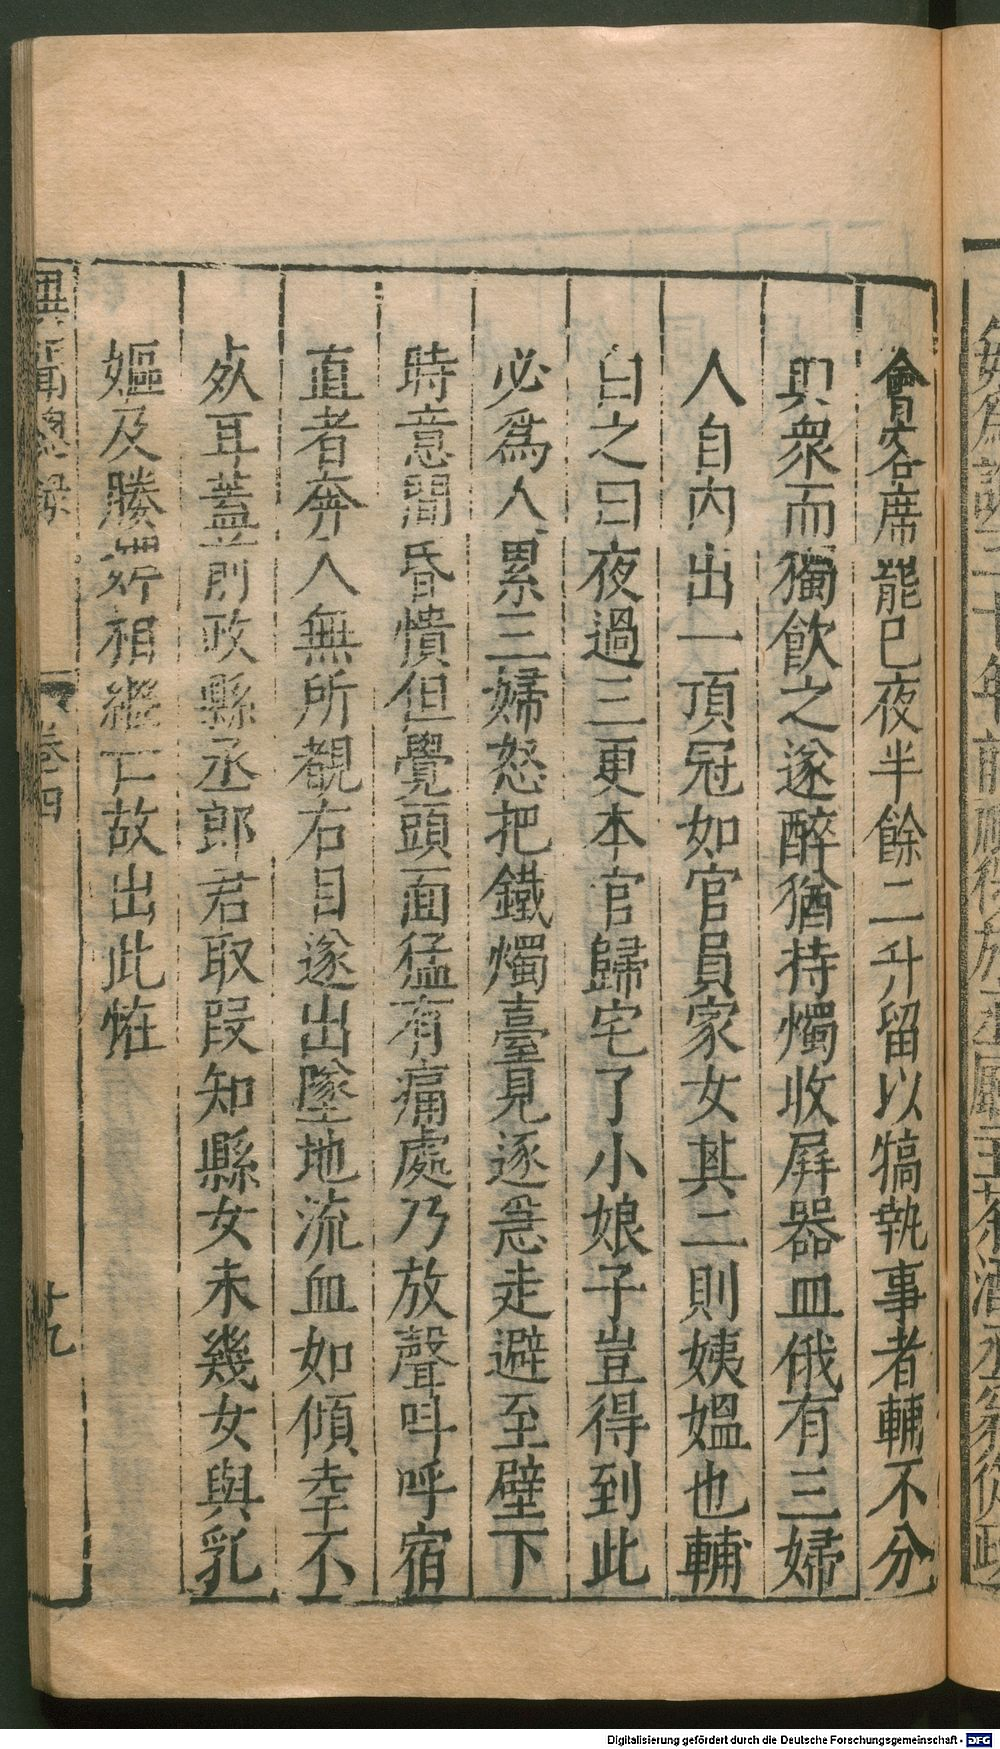 會客席罷已夜半餘二升留以犒執事者輔不分
與衆而獨飲之遂醉猶持燭收屏器皿俄有三婦
人自內出一頂冠如官員家女其二則姨媼也輔
白之曰夜過三更本官歸宅了小娘子豈得到此
必爲人累三婦怒把鐵燭臺見逐急走避至壁下
時意間昏憒但覺頭面猛有痛處乃放聲呌呼宿
直者奔入無所覩右目遂出墜地流血如傾幸不
死耳蓋前政縣丞郎君取段知縣女未幾女與乳
嫗及媵妾相繼亡故出此恠
異聞總錄
卷四
廿九
Digitalisierung gefördert durch die Deutsche Forschungsgemeinschaft - DFG